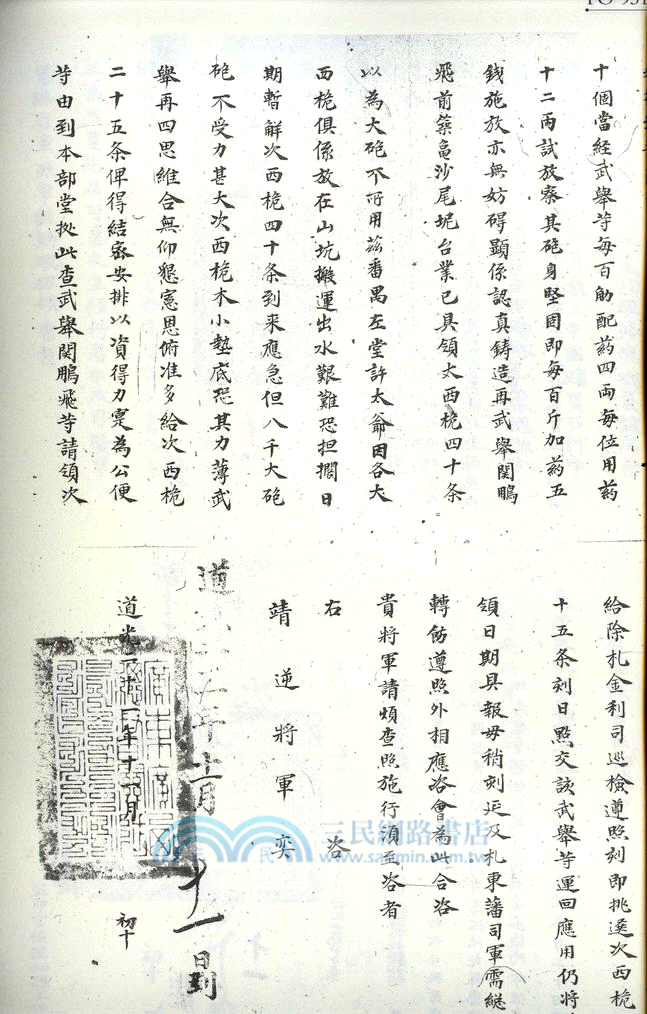 FO 931
十個當經武舉等每百觔配葯四両每位用葯
十二両試放察其砲身堅固即每百斤加葯五
錢施放亦無妨碍顯係認真鋳造再武舉関鵬
飛前築亀沙尾坭台業已具領大西桅四十条
以為大砲不所用茲番禺左堂許太爺因各大
西桅俱係放在山坑搬運出水艱難恐担擱日
期暫觧次西桅四十条到来應急但八千大砲
砲不受力甚大次西桅木小墊底恐其力薄武
舉再四思維合無仰懇憲恩俯准多給次西桅
二十五条俾得結察安排以資得力寔為公便
等由到本部堂拠此查武舉関鵬飛等請領次
給除札金利司巡檢遵照刻即挑選次西桅
十五条刻日㸃交該武舉等運回應用仍将
領日期具報毋稍刻延及札東藩司軍需総
轉飭遵照外相應咨會為此合咨
貴将軍請煩查照施行湏至咨者
右 咨
靖逆将軍奕
道光二十一年十一月 初十
十一日到
三民網路書店
www.sanmin.com.tw